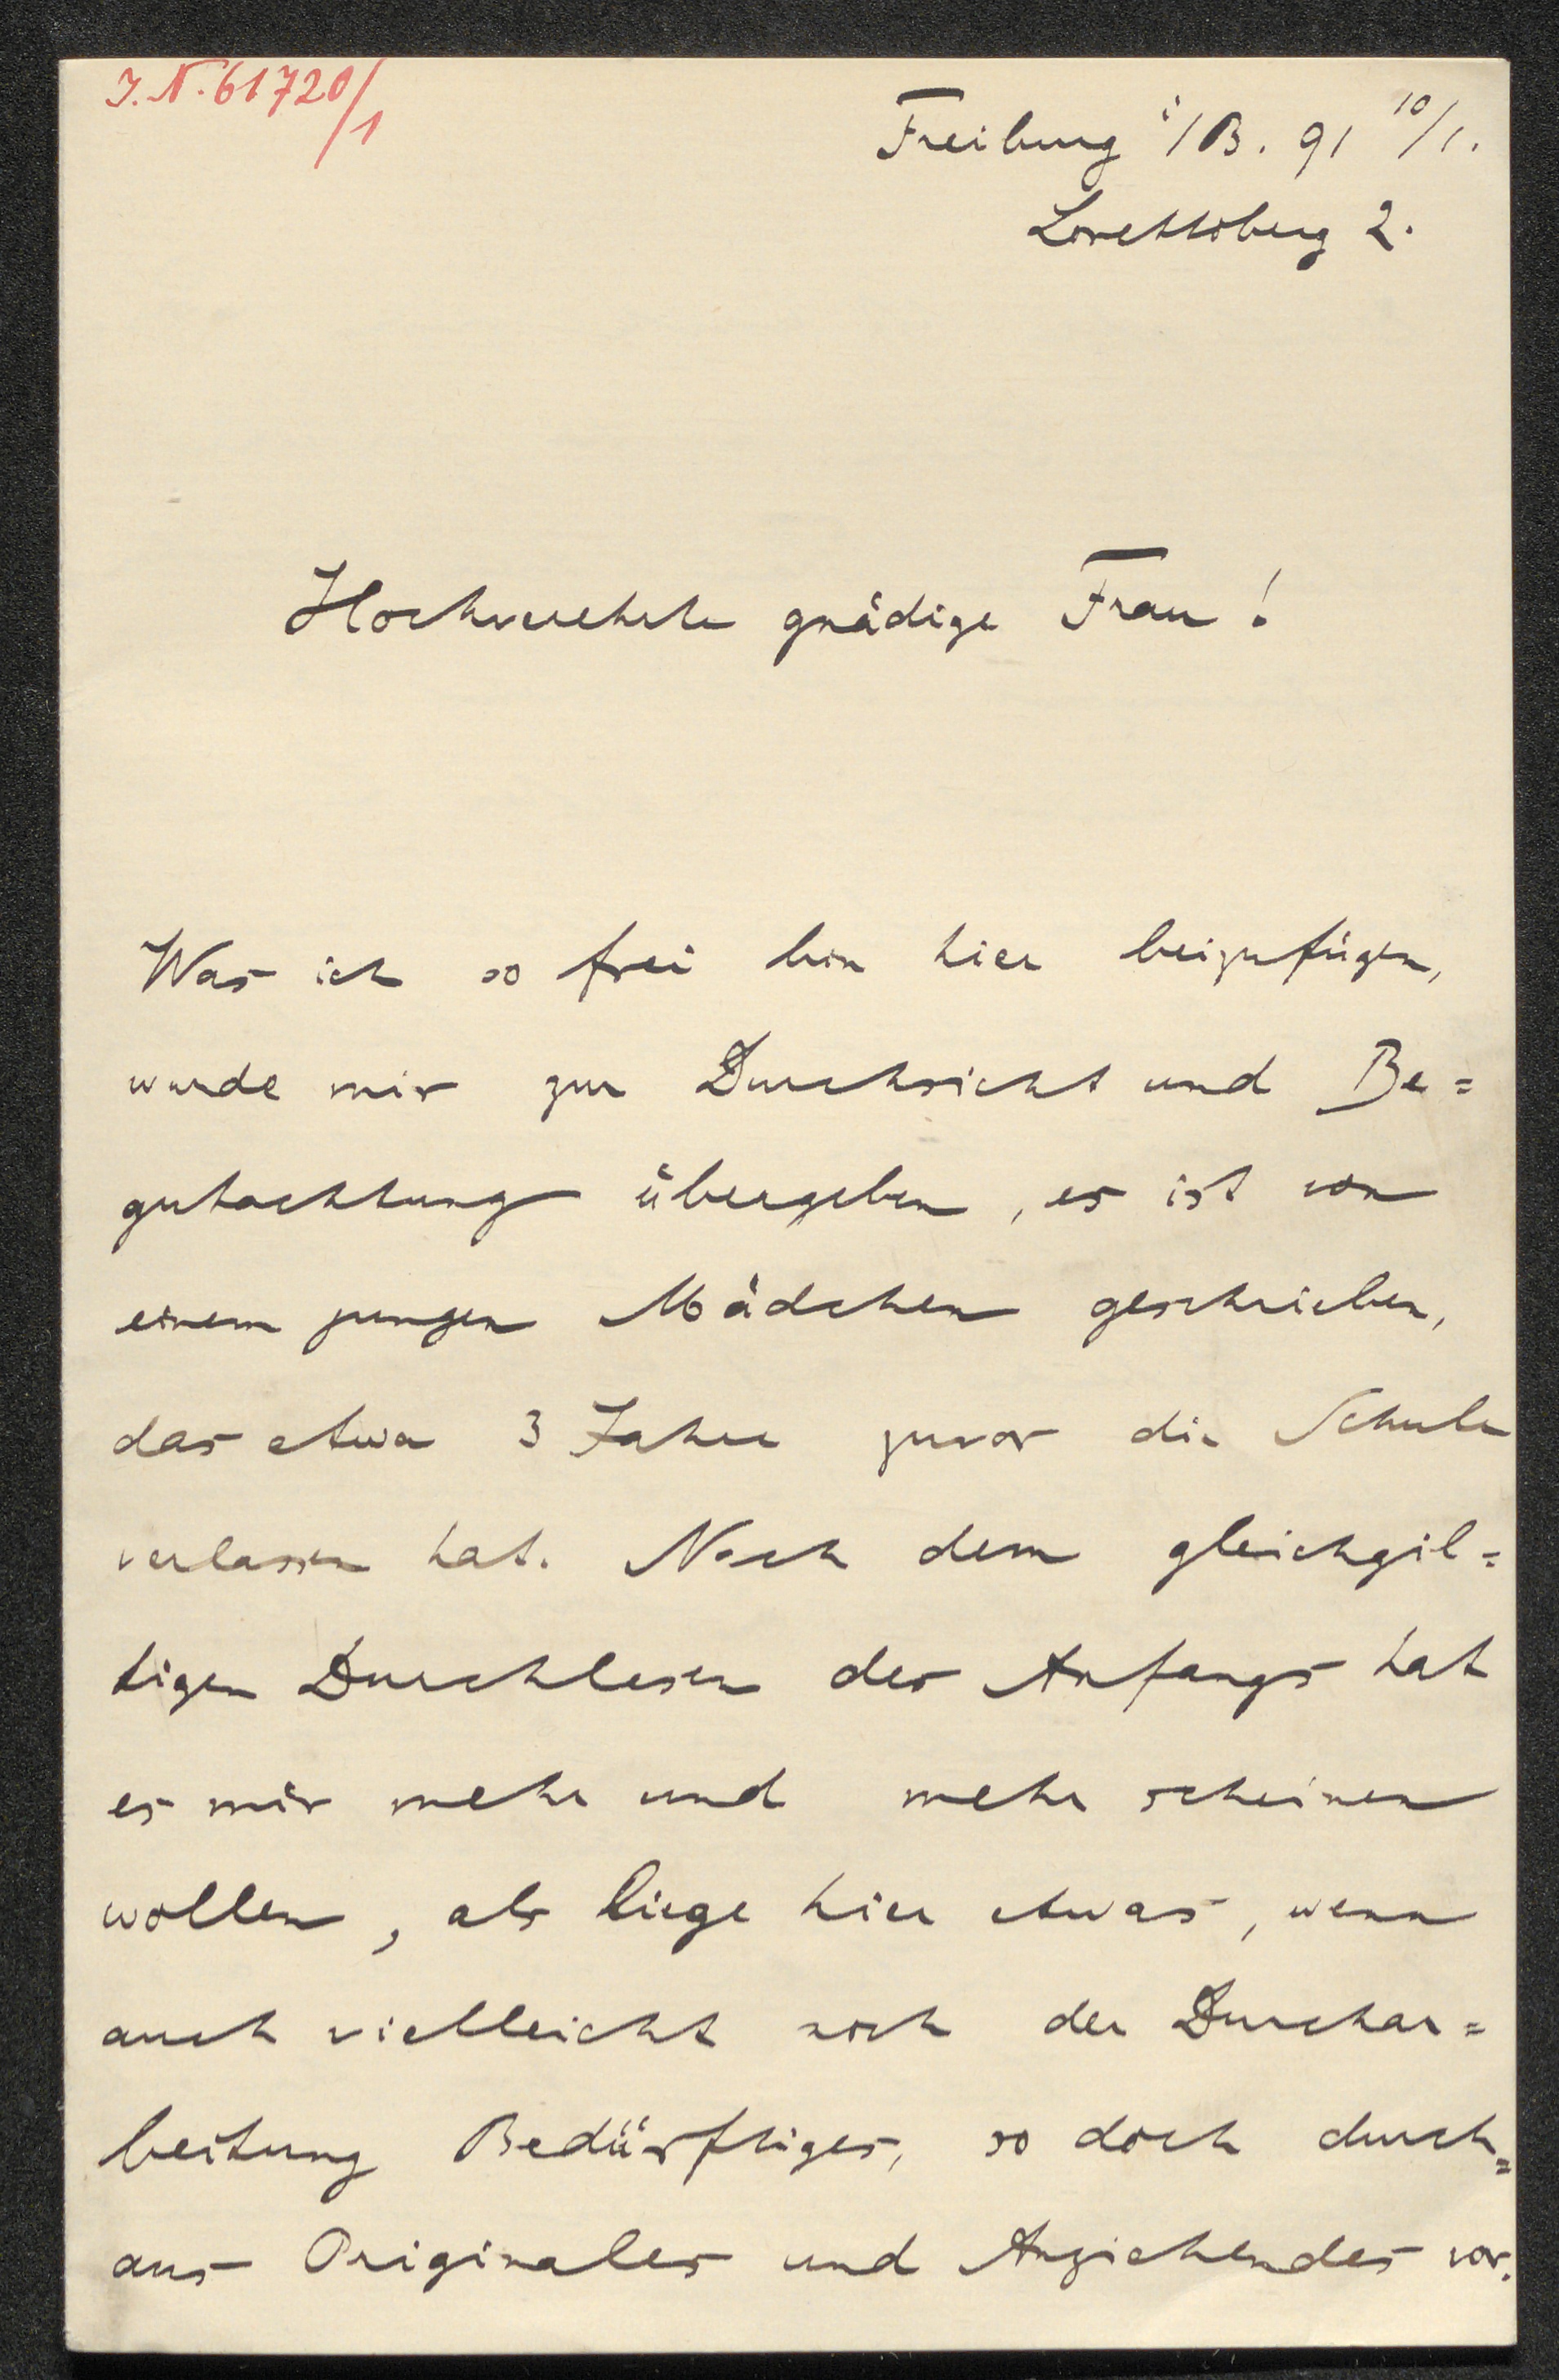 J. N. 61720/1
Freiburg i/B. 91 10/1.
Lorettoberg 2.
Hochverehrte gnädige Frau!
Was ich so frei bin hier beizufügen,
wurde mir zur Durchsicht und Be=
gutachtung übergeben, es ist von
einem jungen Mädchen geschrieben,
das etwa 3 Jahre zuvor die Schule
verlassen hat. Nach dem gleichgil=
tigen Durchlesen des Anfangs hat
es mir mehr und mehr scheinen
wollen, als liege hier etwas, wenn
auch vielleicht noch der Durchar=
beitung Bedürftiges, so doch durch=
aus Originales und Anziehendes vor.